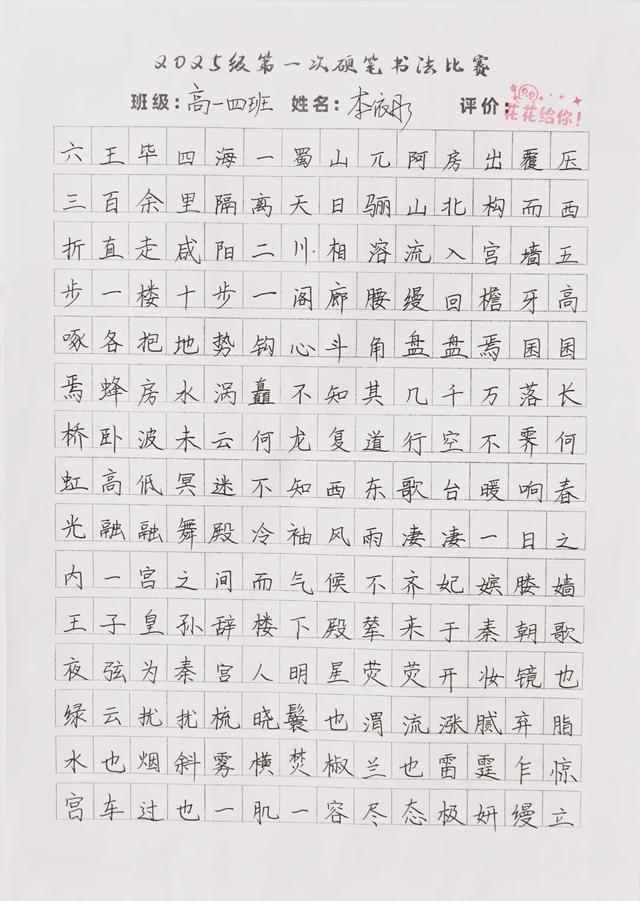 2025级第一次硬笔书法比赛
班级：高一四班 姓名：李依彤 评价：花花给你！
六王毕四海一蜀山兀阿房出覆压
三百余里隔离天日骊山北构而西
折直走咸阳二川相溶流入宫墙五
步一楼十步一阁廊腰缦回檐牙高
啄各抱地势钩心斗角盘盘焉囷囷
焉蜂房水涡矗不知其几千万落长
桥卧波未云何龙复道行空不霁何
虹高低冥迷不知西东歌台暖响春
光融融舞殿冷袖风雨凄凄一日之
内一宫之间而气候不齐妃嫔媵嫱
王子皇孙辞楼下殿辇来于秦朝歌
夜弦为秦宫人明星荧荧开妆镜也
绿云扰扰梳晓鬟也渭流涨腻弃脂
水也烟斜雾横焚椒兰也雷霆乍惊
宫车过也一肌一容尽态极妍缦立